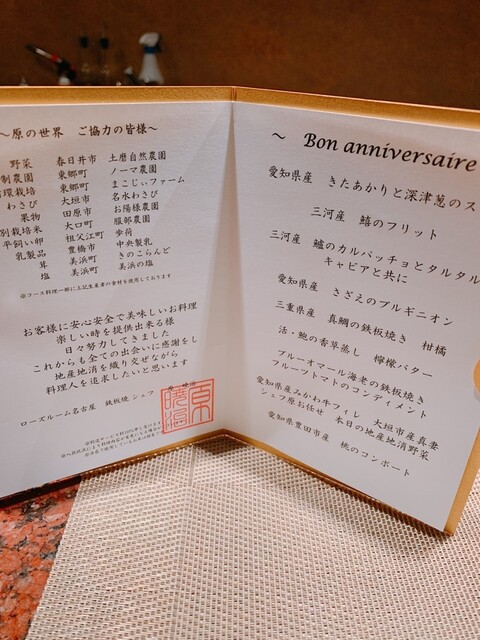 ～原の世界　ご協力の皆様～
野菜　春日井市　土磨自然農園
制農園　東郷町　ノーマ農園
環栽培　東郷町　まこじぃファーム
わさび　大垣市　名水わさび
果物　田原市　お陽様農園
別栽培米　大口町　服部農園
平飼い卵　祖父江町　歩荷
乳製品　豊橋市　中央製乳
茸　美浜町　きのこらんど
塩　美浜町　美浜の塩
※コース料理一部に上記生産者の食材を使用しております
お客様に安心安全で美味しいお料理
楽しい時を提供出来る様
日々努力してきました
これからも全ての出会いに感謝をし
地産地消を織り交ぜながら
料理人を追求したいと思います
ローズルーム名古屋　鉄板焼 シェフ　原
～　Bon anniversaire
愛知県産　きたあかりと深津葱のス
三河産　鰆のフリット
三河産　鱸のカルパッチョとタルタル
キャビアと共に
愛知県産　さざえのブルギニオン
三重県産　真鯛の鉄板焼き　柑橘
活・鮑の香草蒸し　檸檬バター
ブルーオマール海老の鉄板焼き
フルーツトマトのコンディメント
愛知県産みかわ牛フィレ　大垣市産真妻
シェフ原お任せ　本日の地産地消野菜
愛知県豊田市産　桃のコンポート